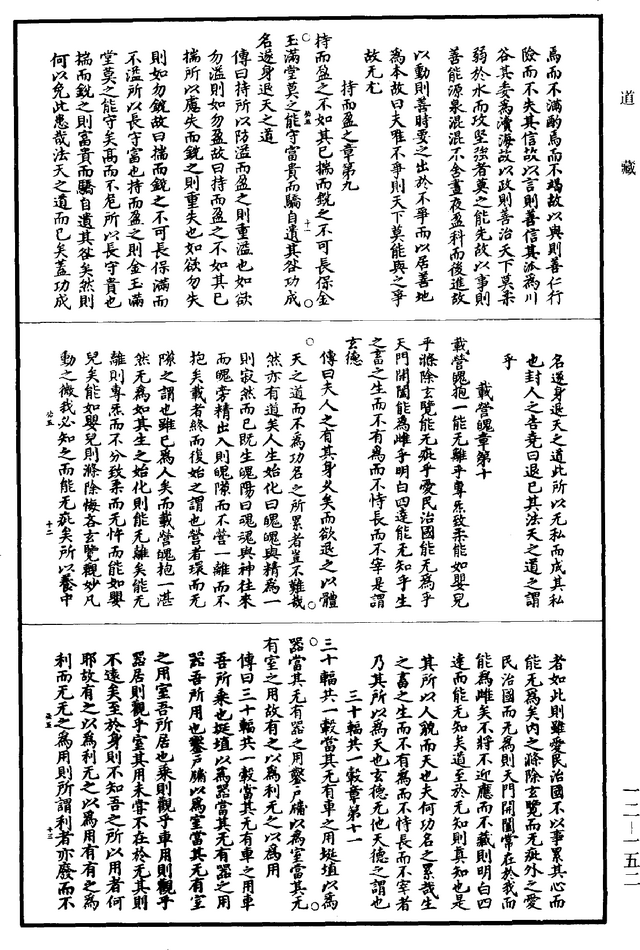 道藏
焉而不滿酌焉而不竭故以與則善仁行
險而不失其信故以言則善信其派為川
谷其委為瀆海故以政則善治天下莫柔
弱於水而攻堅強者莫之能先故以事則
善能源泉混混不舍晝夜盈科而後進故
以動則善時要之出於不爭而以居善地
為本故曰夫唯不爭則天下莫能與之爭
故无尤
持而盈之章第九
持而盈之不如其已揣而銳之不可長保金
玉滿堂莫之能守富貴而驕自遺其咎功成
名遂身退天之道
傳曰持所以防溢而盈之則重溢也如欲
勿溢則如勿盈故曰持而盈之不如其已
揣所以慮失而銳之則重失也如欲勿失
則如勿銳故曰揣而銳之不可長保滿而
不溢所以長守富也持而盈之則金玉滿
堂莫之能守矣高而不危所以長守貴也
揣而銳之則富貴而驕自遺其咎矣然則
何以免此患哉法天之道而已矣蓋功成
名遂身退天之道此所以无私而成其私
也封人之告堯曰退已其法天之道之謂
乎
載營魄章第十
載營魄抱一能无離乎專炁致柔能如嬰兒
乎滌除玄覽能无疵乎愛民治國能无為乎
天門開闔能為雌乎明白四達能无知乎生
之畜之生而不有為而不恃長而不宰是謂
玄德
傳曰夫人之有其身久矣而欲退之以體
天之道而不為功名之所累者豈不難哉
然亦有道矣人生始化曰魄魄與精為一
則寂然而已既生魄陽曰魂魂與神往來
而魄旁精出入則魄隙而不營一離而不
抱矣載者終而復始之謂也營者環而无
隙之謂也雖已為人矣而載營魄抱一湛
然无為如其生之始化則能无離矣能无
離則專炁而不分致柔而无忤而能如嬰
兒矣能如嬰兒則滌除悔吝玄覽觀妙凡
動之微我必知之而能无疵矣所以養中
者如此則雖愛民治國不以事累其心而
能无為矣內之滌除玄覽而无疵外之愛
民治國而无為則天門開闔常在於我而
能為雌矣不將不迎應而不藏則明白四
達而能无知矣道至於无知則真知也是
其所以人貌而天也夫何功名之累哉生
之畜之生而不有為而不恃長而不宰者
乃其所以為天也玄德无他天德之謂也
三十輻共一轂章第十一
三十輻共一轂當其无有車之用埏埴以為
器當其无有器之用鑿戶牖以為室當其无
有室之用故有之以為利无之以為用
傳曰三十輻共一轂當其无有車之用車
吾所乘也埏埴以為器當其无有器之用
器吾所用也鑿戶牖以為室當其无有室
之用室吾所居也乘則觀乎車用則觀乎
器居則觀乎室其用未嘗不在於无其則
不遠矣至於身則不知吾之所以用者何
耶故有之以為利无之以為用有有之為
利而无无之為用則所謂利者亦廢而不
一二—一五二